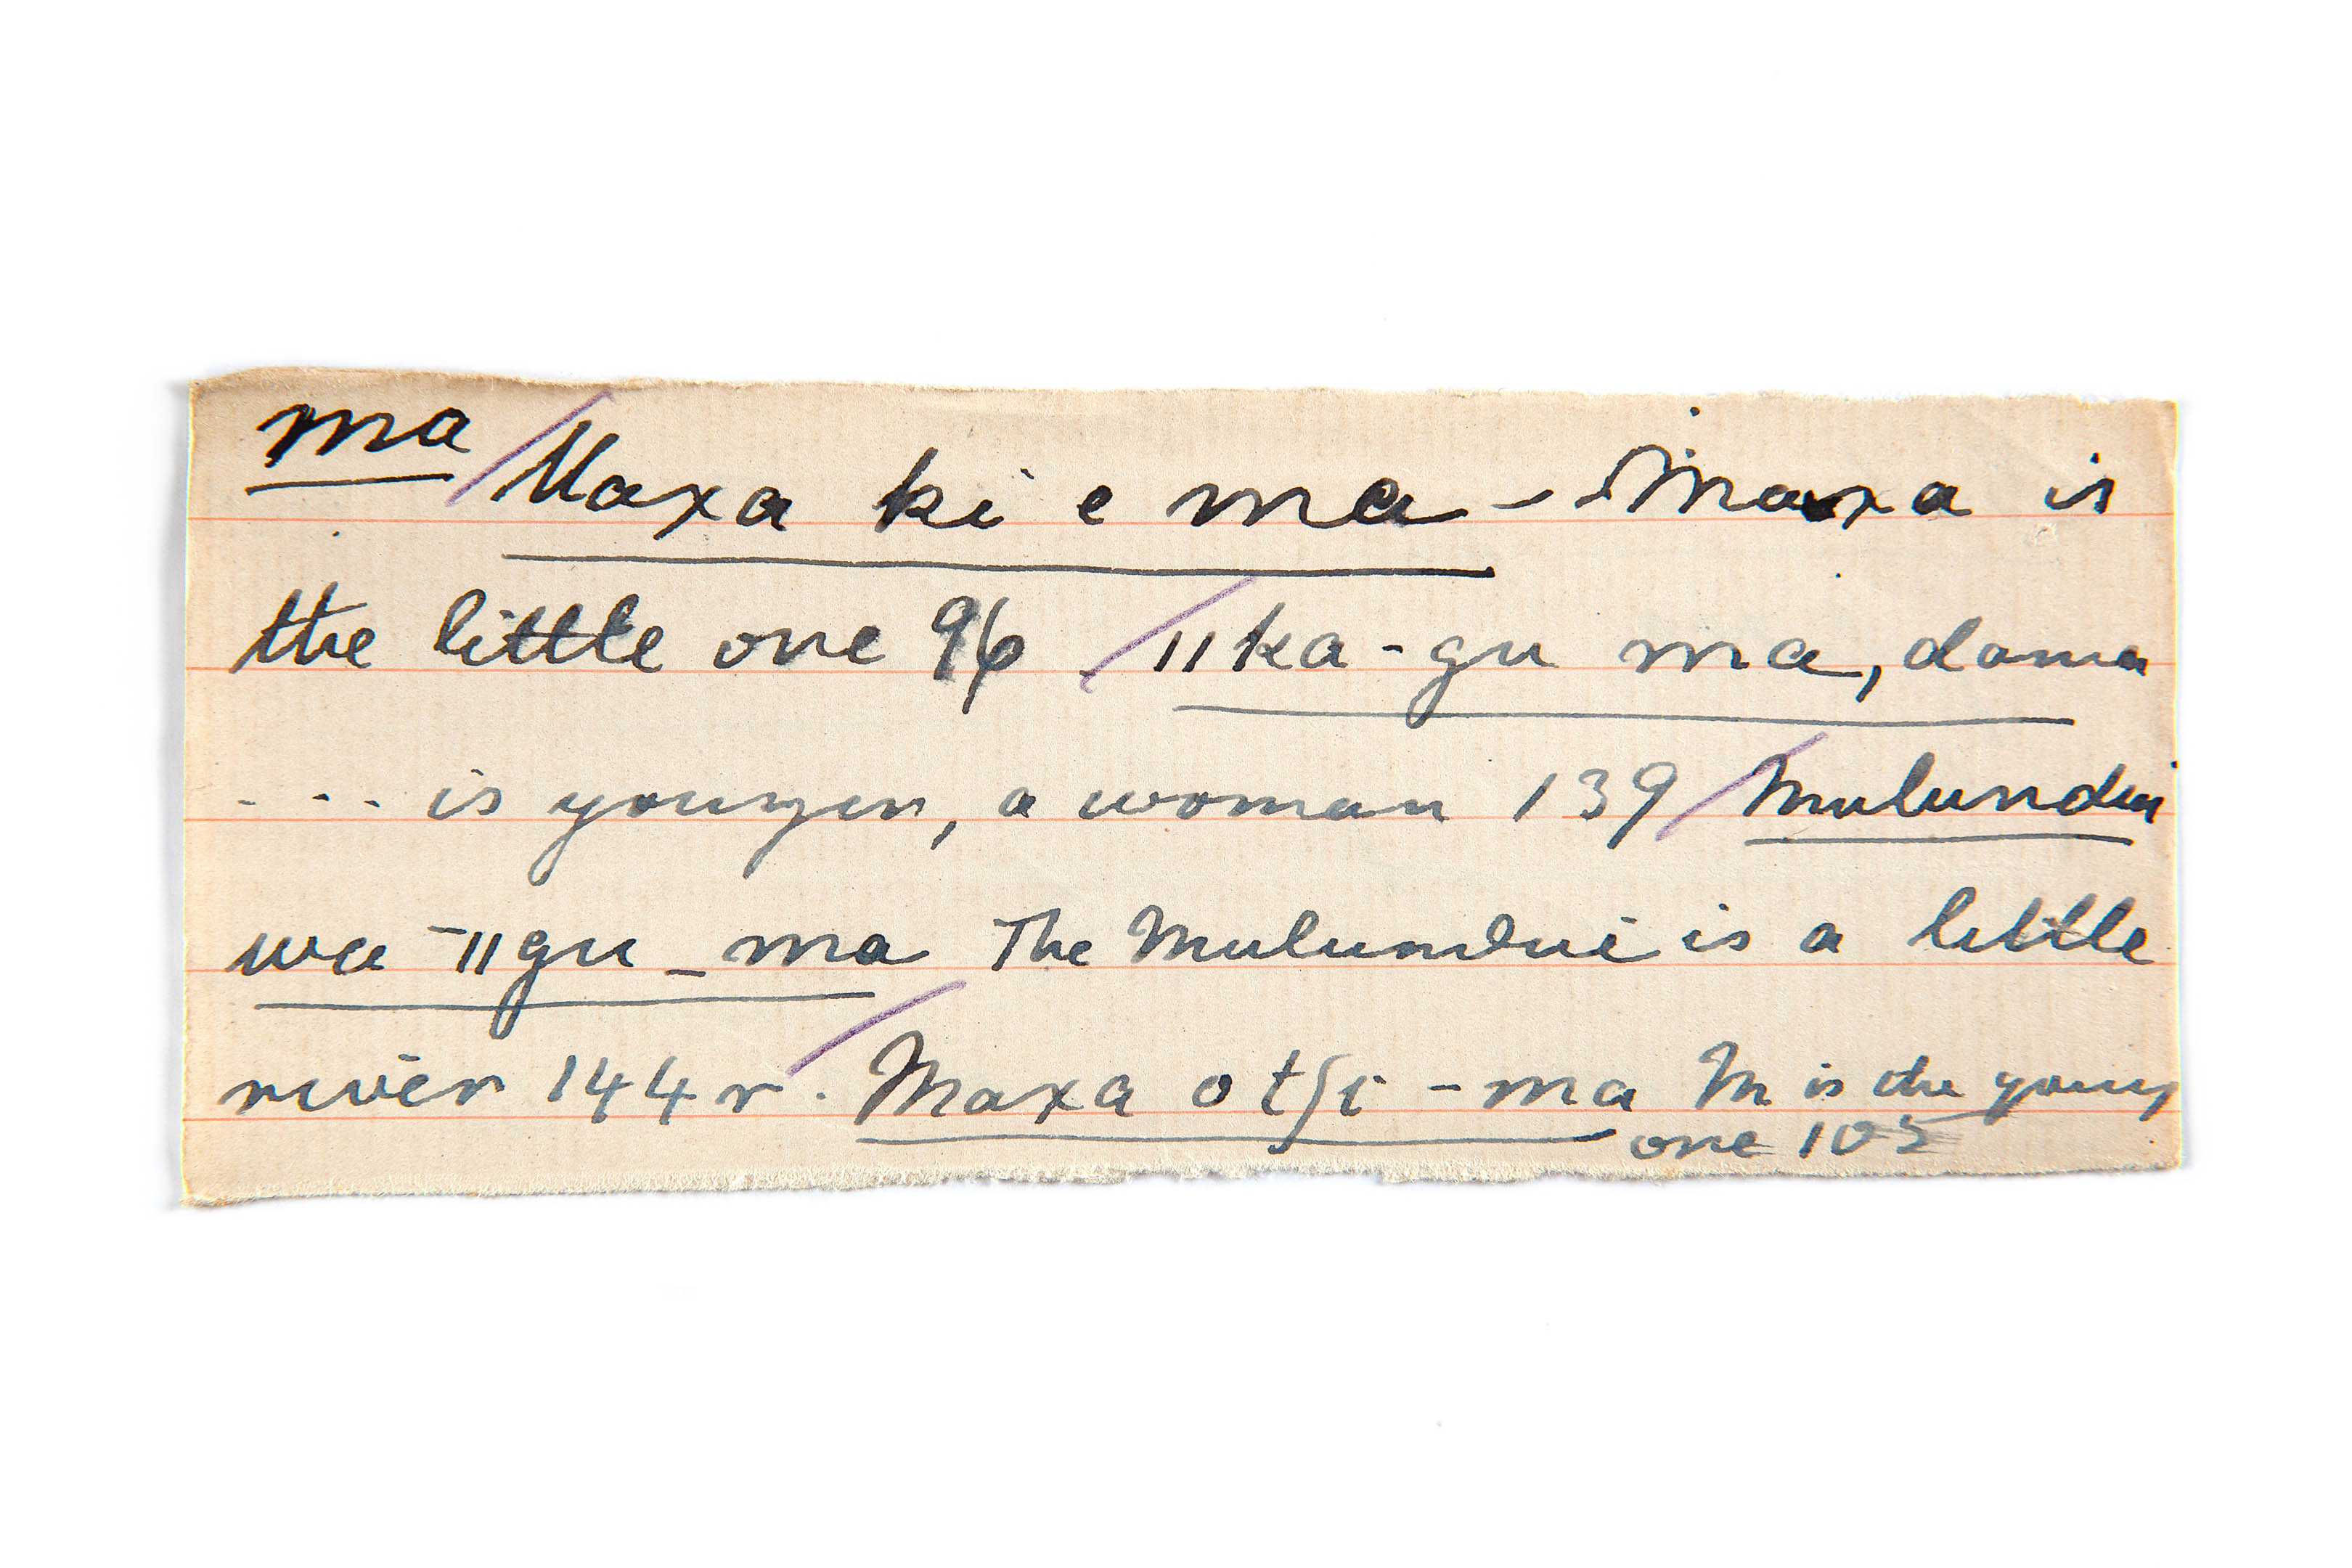 ma / Maxa ki e ma - Maxa is
the little one 96 / ǁka-gu ma, dama
... is younger, a woman 139 / Mulundui
wa -ǁgu_ma The Mulundui is a little
river 144 r. / Maxa otʃi - ma M is the young
one 105